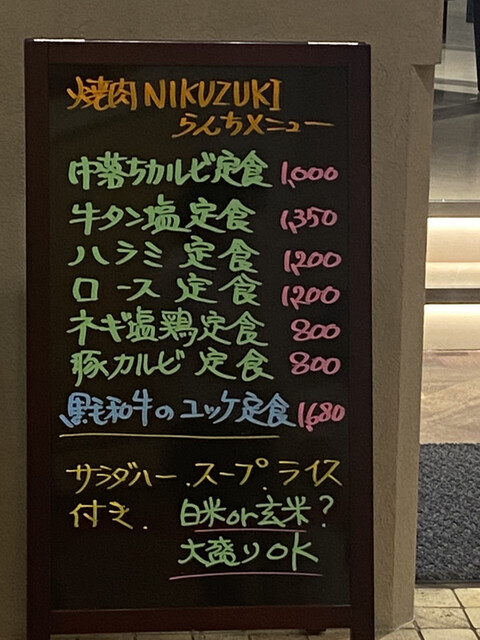 焼肉 NIKUZUKI
らんちメニュー
中落ちカルビ定食 1,000
牛タン塩定食 1,350
ハラミ 定食 1,200
ロース 定食 1,200
ネギ塩鶏定食 800
豚カルビ 定食 800
黒毛和牛のユッケ定食 1,680
サラダバー.スープ.ライス
付き. 白米or玄米?
大盛りOK